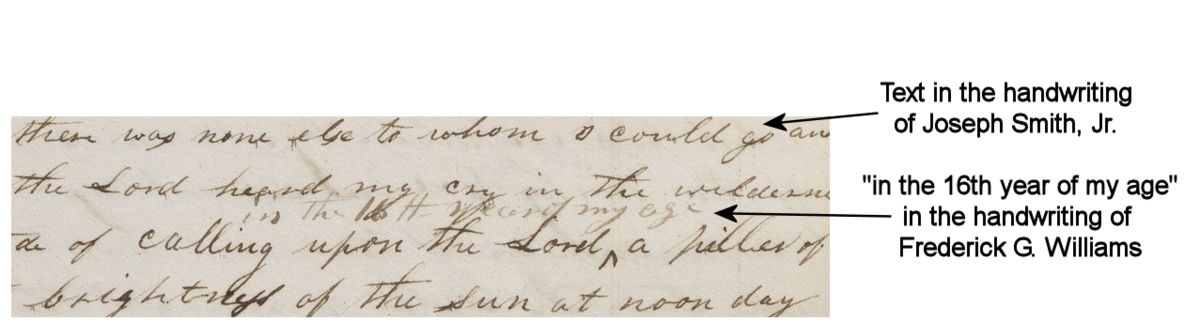 there was none else to whom I could go and
the Lord heard my cry in the wilderne
in the 16th year of my age
de of calling upon the Lord ^ a piller of
brightness of the sun at noon day
Text in the handwriting
of Joseph Smith, Jr.
"in the 16th year of my age"
in the handwriting of
Frederick G. Williams